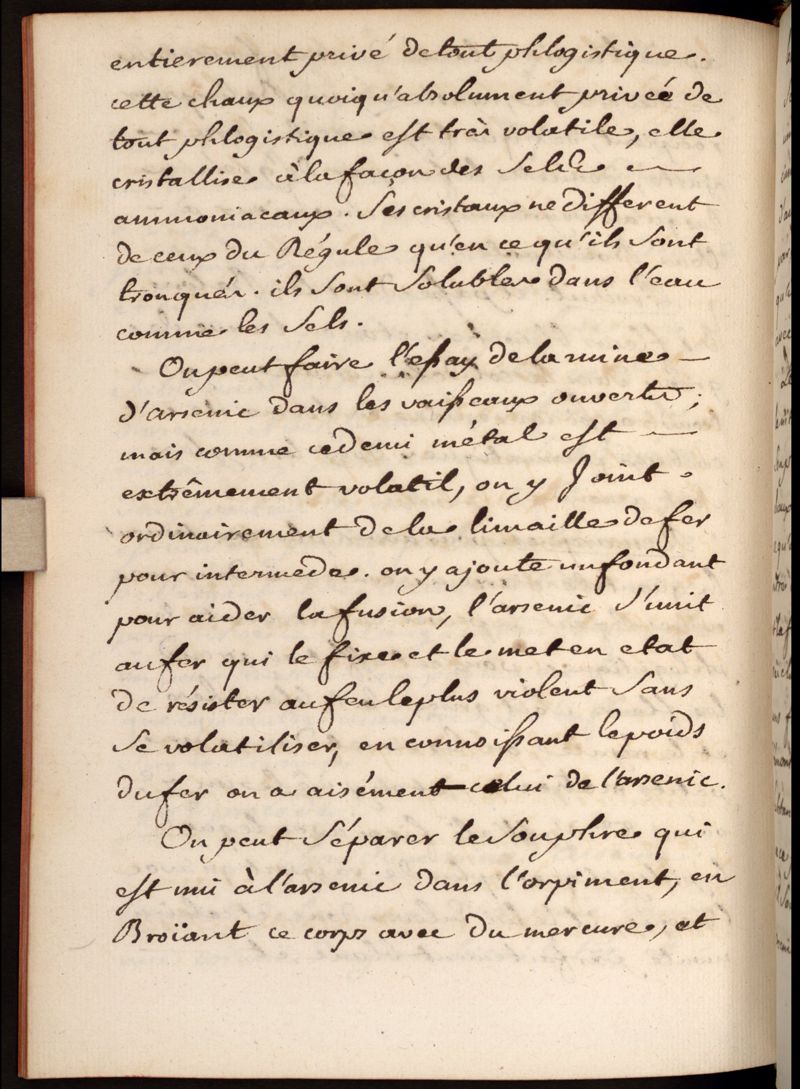 entierement privé de tout phlogistique.
cette chaux quoiqu'absolument privée de
tout phlogistique est très volatile, elle
cristallise à la façon des Sels
ammoniacaux. Ses cristaux ne different
de ceux du Régule qu'en ce qu'ils sont
tronqués. ils sont Solubles dans l'eau
comme les Sels.
On peut faire l'essay de la mine
d'arsenic dans les vaisseaux ouverts;
mais comme ce demi métal est
extrêmement volatil, on y Joint
ordinairement de la limaille de fer
pour intermede. on y ajoute un fondant
pour aider la fusion, l'arsenic s'unit
au fer qui le fixe et le met en etat
de résister au feu le plus violent Sans
Se volatiliser, en connoissant le poids
du fer on a aisément celui de l'arsenic.
On peut Séparer le Souphre qui
est uni à l'arsenic dans l'orpiment, en
Broïant ce corps avec du mercure, et